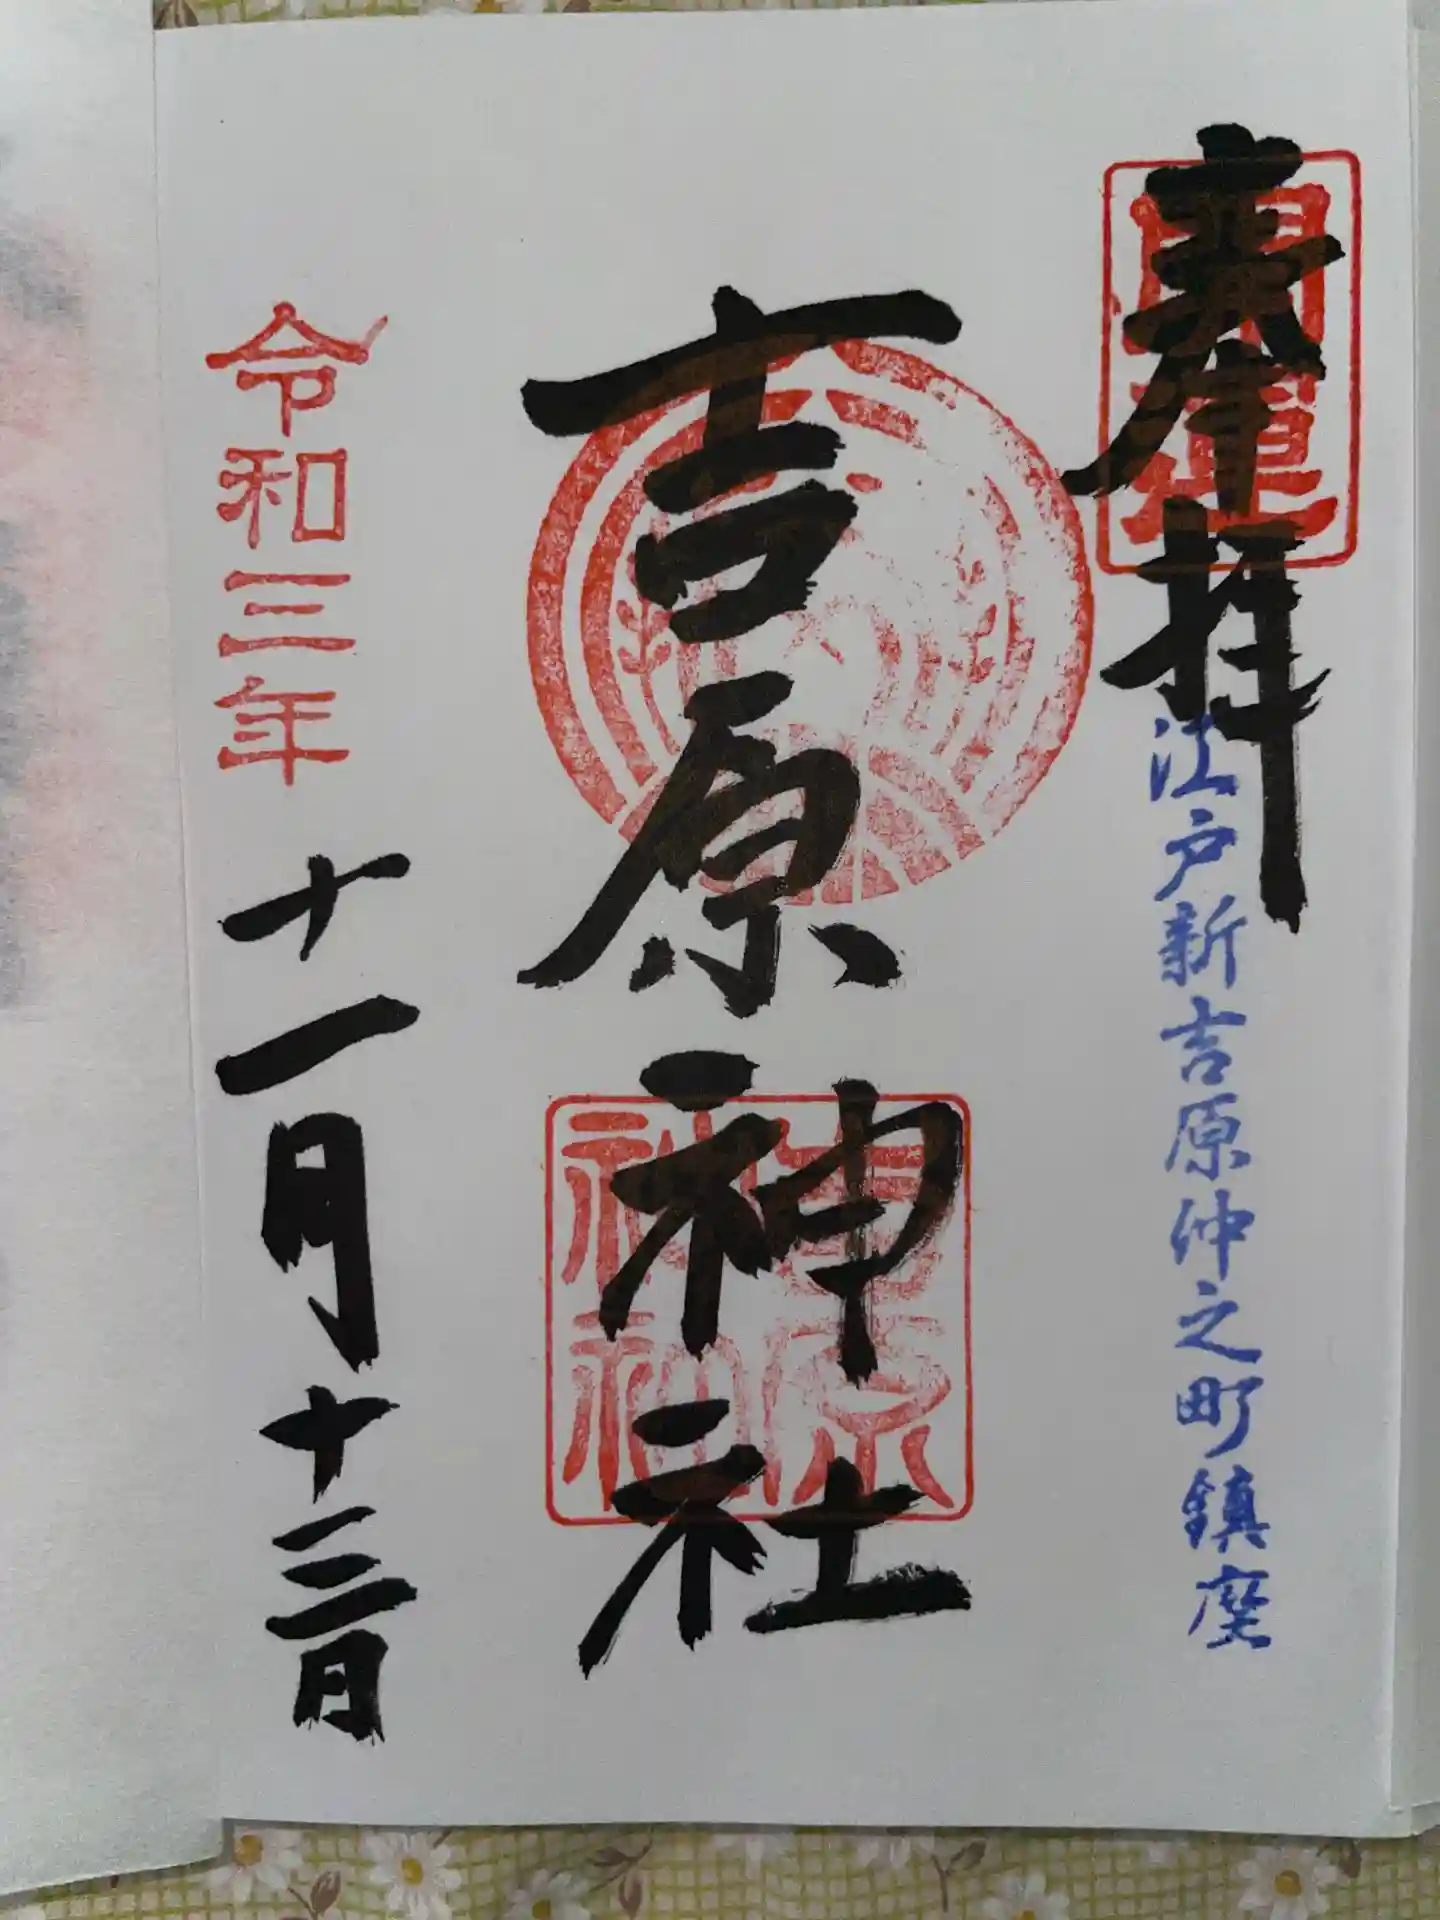 奉拝
開運
江戸新吉原仲之町鎮座
吉原神社
吉原
神社
令和三年十一月十三日